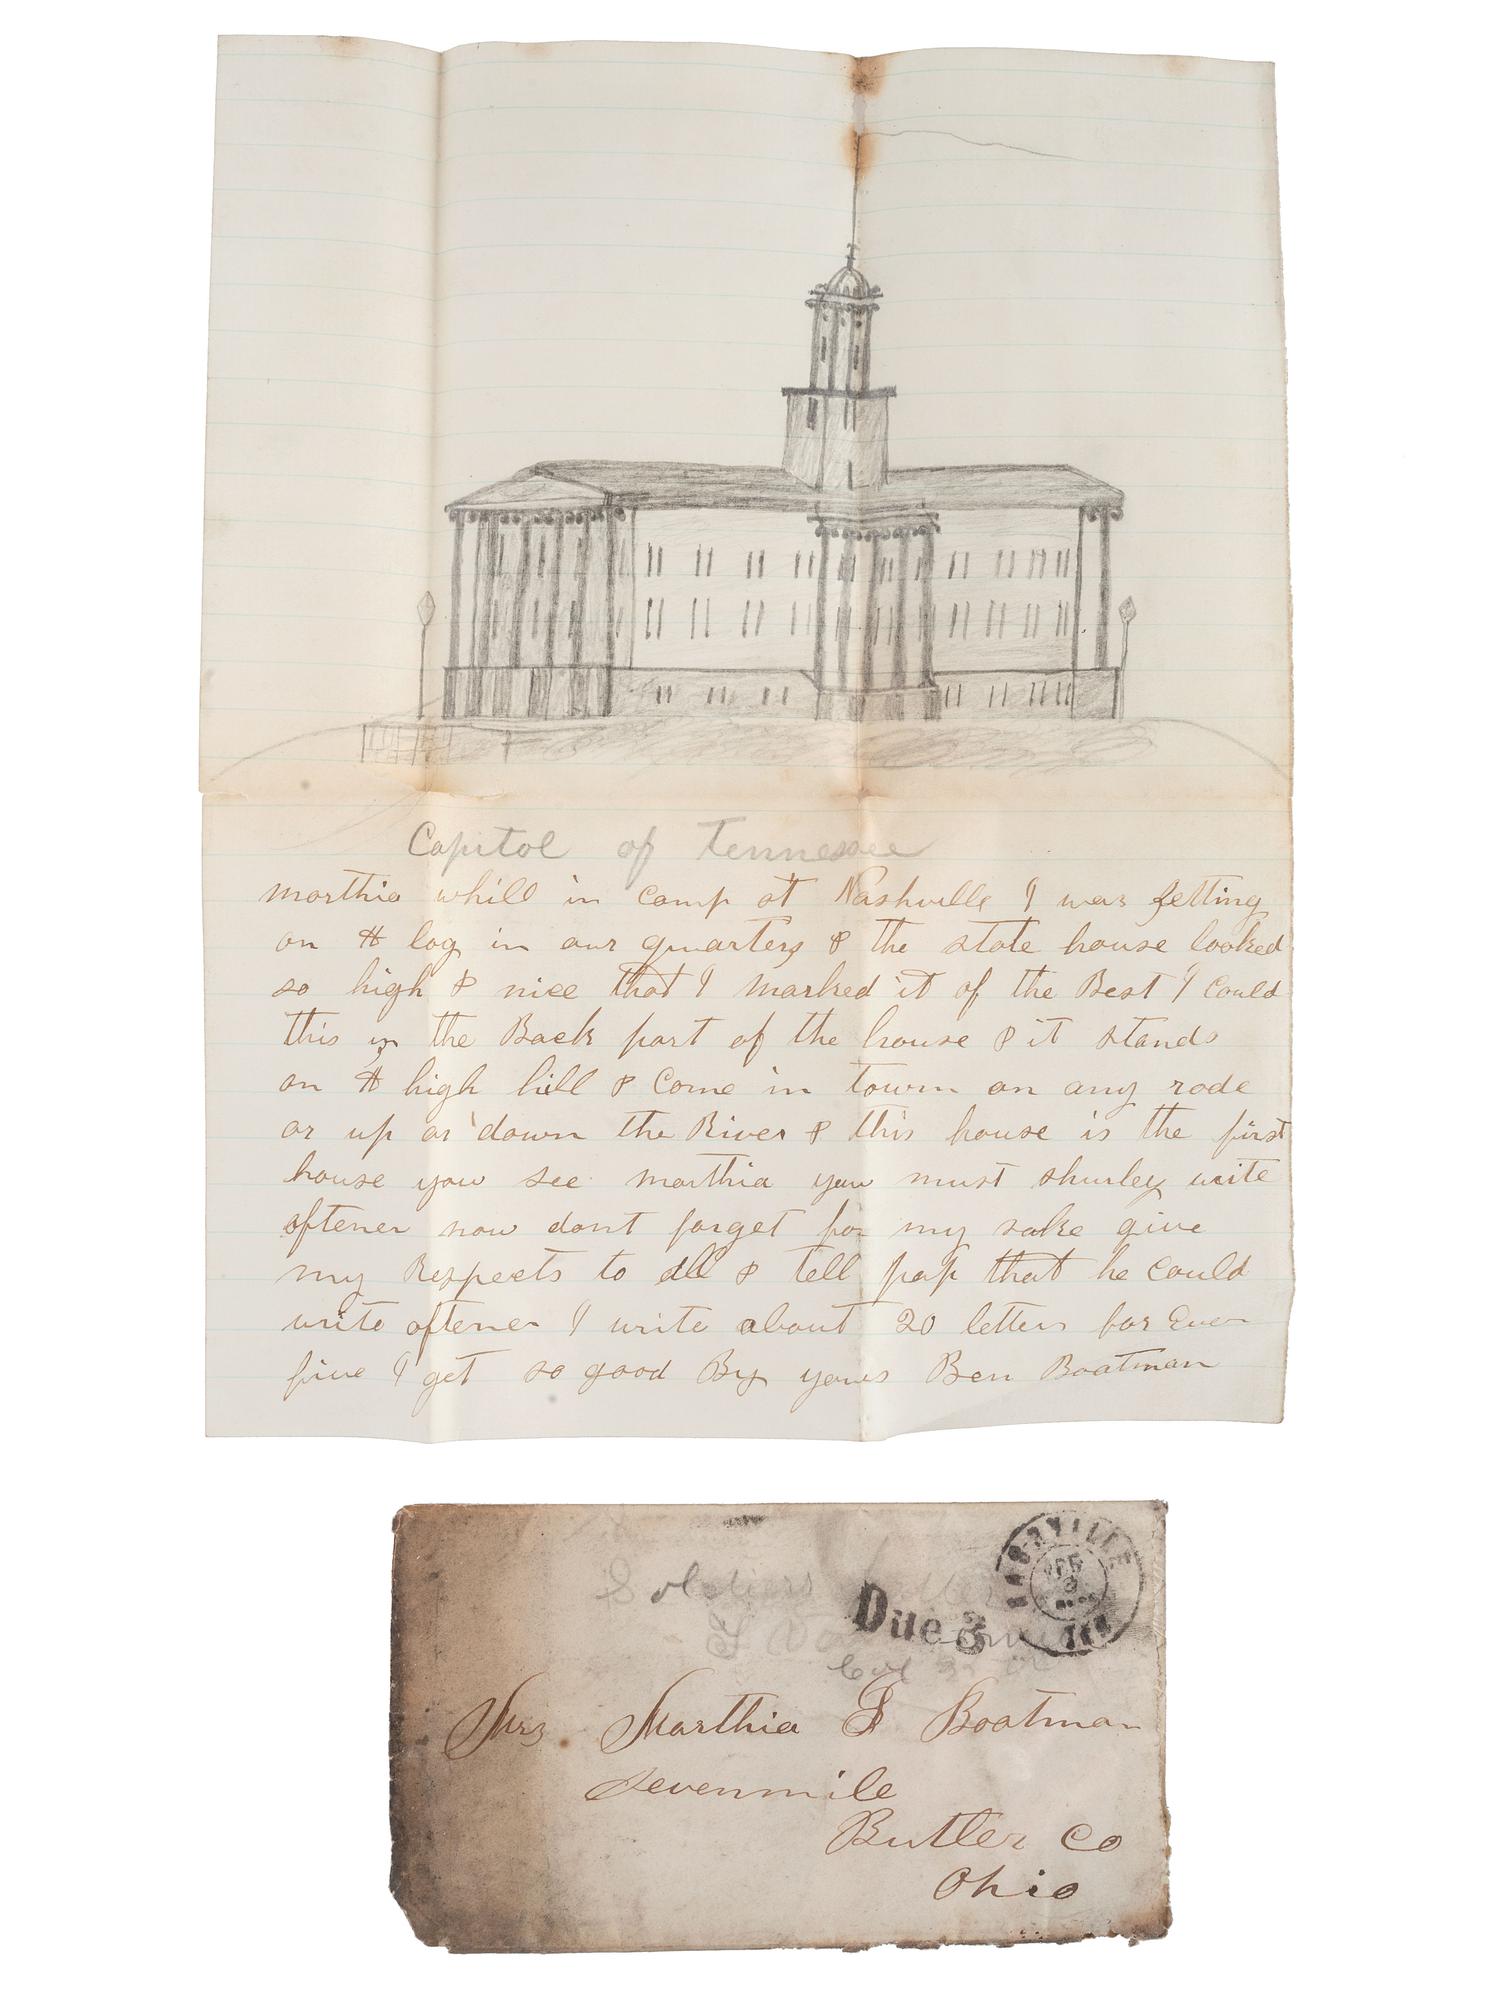 Capitol of Tennessee
marthia whill in camp at Nashville I was setting
on A log in our quarters & the state house looked
so high & nice that I marked it of the Best I could
this is the Back part of the house & it stands
on A high hill & Come in towrn on any rode
or up or down the River & this house is the first
house you see marthia you must shurley write
oftener now dont forget for my sake give
my Respects to all & tell pap that he could
write oftener I write about 20 letters for Ever
five I get so good By yours Ben Boatman
NASHVILLE
Soldiers letter
Due 3
Mrs Marthia J Boatman
Sevenmile
Butler Co
Ohio